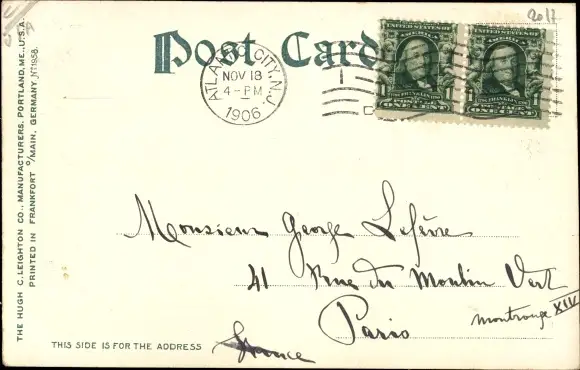 2017
USA
Post Card
ATLANTIC CITY, N.J.
NOV 18
4-PM
1906
UNITED STATES OF
AMERICA
FRANKLIN
1 ONE CENT 1
UNITED STATES OF
AMERICA
FRANKLIN
1 ONE CENT 1
THE HUGH C. LEIGHTON CO., MANUFACTURERS, PORTLAND, ME., U.S.A.
PRINTED IN FRANKFORT o/MAIN, GERMANY. No 1958.
Monsieur George Lefèvre
41 Rue du Moulin Vert
Paris
montrouge XIV
France
THIS SIDE IS FOR THE ADDRESS